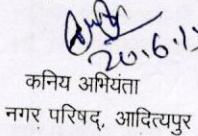 20.6.1
कनिय अभियंता
नगर परिषद्, आदित्यपुर